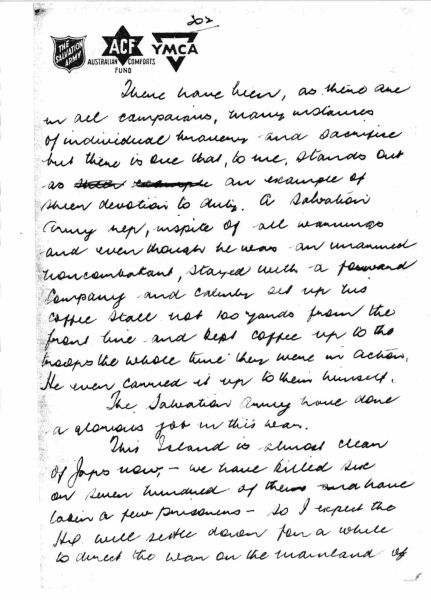 202
THE SALVATION ARMY
ACF
AUSTRALIAN COMFORTS FUND
YMCA
There have been, as there are
in all campaigns, many instances
of individual bravery and sacrifice
but there is one that, to me, stands out
as an example of
sheer devotion to duty. A Salvation
Army rep, inspite of all warnings
and even though he was an unarmed
noncombatant, stayed with a forward
Company and calmly set up his
coffee stall not 100 yards from the
front line and kept coffee up to the
troops the whole time they were in action.
He even carried it up to them himself.
The Salvation Army have done
a glorious job in this war.
This Island is almost clean
of Japs now, – we have killed six
or seven hundred of them and have
taken a few prisoners – so I expect the
H.Q. will settle down for a while
to direct the war on the mainland of